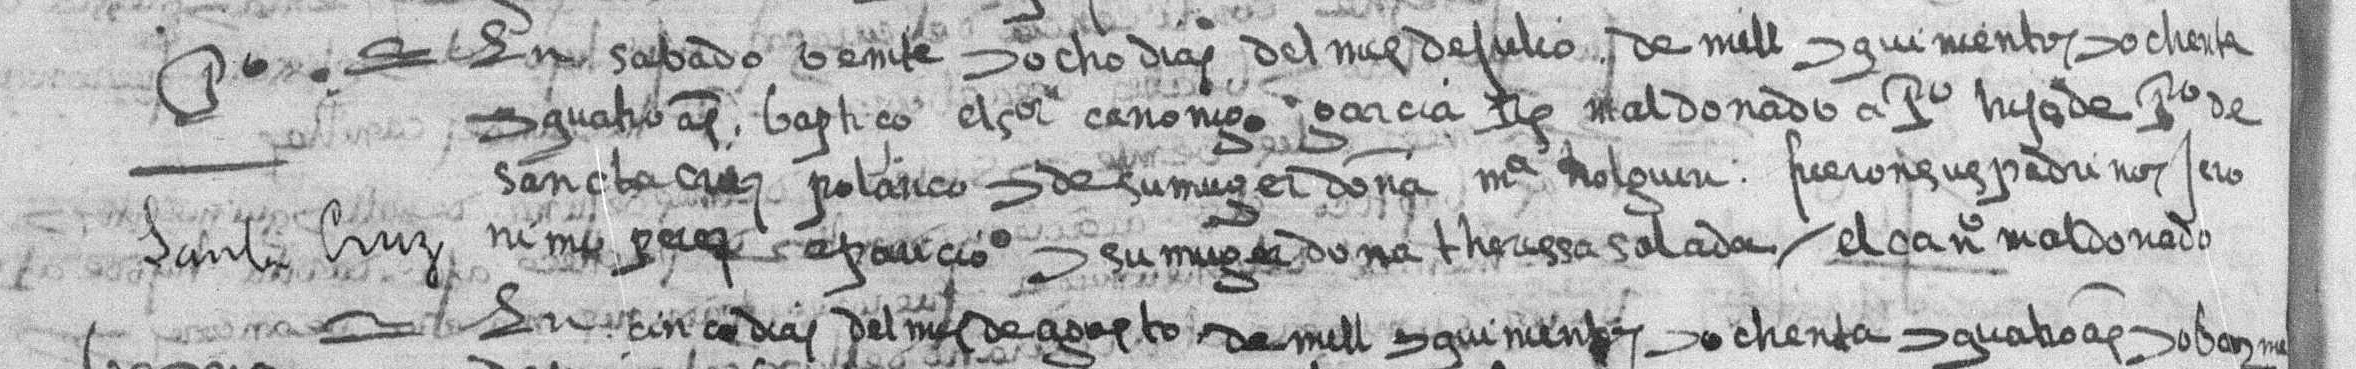 Pº. En sabado veinte y ocho dias del mes de julio de mill y quinientos y ochenta
y quatro as. baptiço el sor canonigo garcia maldonado a Pº hijo de Pº de
sancta cruz polanco y de su muger doña mª holguin. fueron sus padrinos Jero
Santa Cruz nimo perez aparicio y su muger doña theressa salada / el canº maldonado
En cinco dias del mes de agosto de mill y quinientos y ochenta y quatro as yo